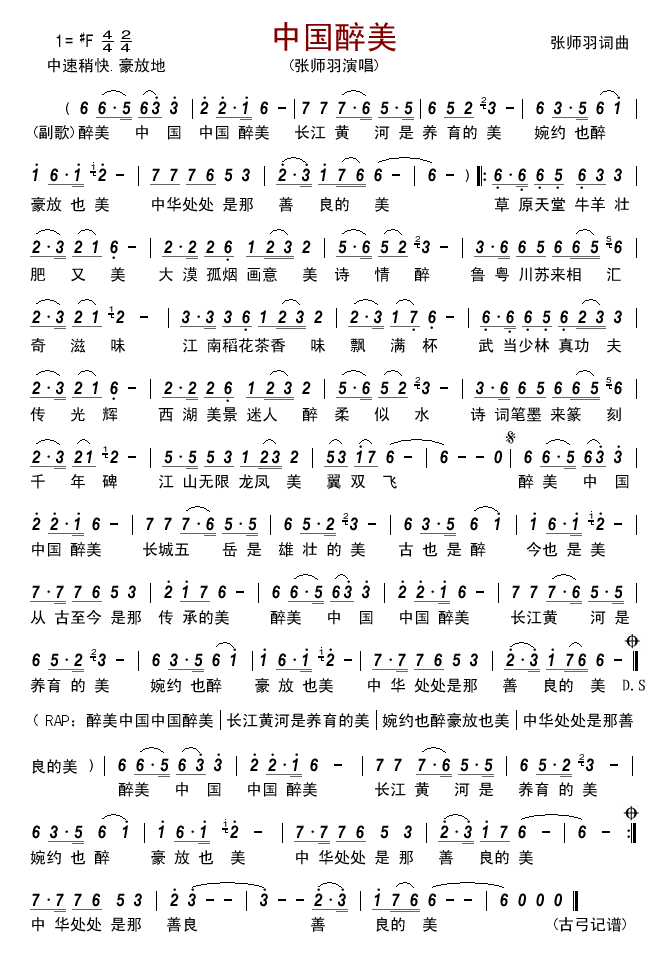 中国醉美
1=♯F 4/4 2/4
张师羽词曲
中速稍快 豪放地
(张师羽演唱)
( 6 6·5 63 3 | 2 2·1 6 - | 7 7 7·6 5·5 | 6 5 2 3 - | 6 3·5 6 1 |
(副歌)醉美 中 国 中国 醉美 长江 黄 河 是 养 育的 美 婉约 也醉
1 6·1 2 - | 7 7 7 6 5 3 | 2·3 1 7 6 6 - | 6 - ) 6·6 6 5 6 3 3 |
豪放 也 美 中华处处 是那 善 良的 美 草 原天堂 牛羊 壮
2·3 2 1 6 - | 2·2 2 6 1 2 3 2 | 5·6 5 2 3 - | 3·6 6 5 6 6 5 6 |
肥 又 美 大 漠 孤烟 画意 美 诗 情 醉 鲁 粤 川苏来相 汇
2·3 2 1 2 - | 3·3 3 6 1 2 3 2 | 2·3 1 7 6 - | 6·6 6 5 6 2 3 3 |
奇 滋 味 江 南稻花茶香 味 飘 满 杯 武 当少林 真功 夫
2·3 2 1 6 - | 2·2 2 6 1 2 3 2 | 5·6 5 2 3 - | 3·6 6 5 6 6 5 6 |
传 光 辉 西 湖 美景 迷人 醉 柔 似 水 诗 词笔墨 来篆 刻
2·3 2 1 2 - | 5·5 5 3 1 2 3 2 | 5 3 1 7 6 - | 6 - - 0 | 6 6·5 6 3 3 |
千 年 碑 江 山无限 龙凤 美 翼 双 飞 醉 美 中 国
2 2·1 6 - | 7 7 7·6 5·5 | 6 5·2 3 - | 6 3·5 6 1 | 1 6·1 2 - |
中国 醉美 长城五 岳 是 雄 壮 的 美 古 也 是 醉 今也 是 美
7·7 7 6 5 3 | 2 1 7 6 - | 6 6·5 6 3 3 | 2 2·1 6 - | 7 7 7·6 5·5 |
从 古至今 是那 传 承的美 醉美 中 国 中国 醉美 长江黄 河 是
6 5·2 3 - | 6 3·5 6 1 | 1 6·1 2 - | 7·7 7 6 5 3 | 2·3 1 7 6 6 -
养育 的 美 婉约 也醉 豪 放 也 美 中 华 处处是那 善 良的 美 D.S
( RAP: 醉美中国中国醉美 | 长江黄河是养育的美 | 婉约也醉豪放也美 | 中华处处是那善
良的美 ) | 6 6·5 6 3 3 | 2 2·1 6 - | 7 7 7·6 5·5 | 6 5·2 3 - |
醉美 中 国 中国 醉美 长江 黄 河 是 养育 的 美
6 3·5 6 1 | 1 6·1 2 - | 7·7 7 6 5 3 | 2·3 1 7 6 - | 6 - :
婉约 也 醉 豪 放 也 美 中 华处处 是 那 善 良的 美
7·7 7 6 5 3 | 2 3 - - | 3 - - 2·3 | 1 7 6 6 - - | 6 0 0 0
中 华处处 是那 善良 善 良的 美 (古弓记谱)